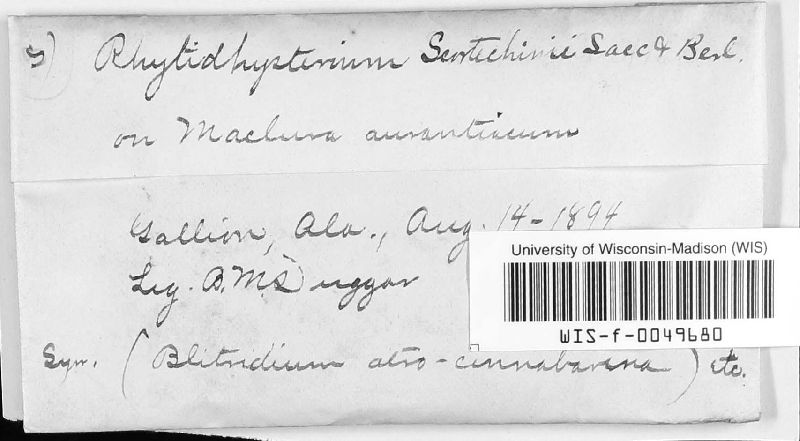 5) Rhytidhysterium Scortechinii Sacc & Berl.
on Maclura aurantiacum
Gallion, Ala., Aug. 14-1894
Leg. B.M. Duggar
University of Wisconsin-Madison (WIS)
WIS-f-0049680
Syn. (Blitridium atro-cinnabarina) etc.